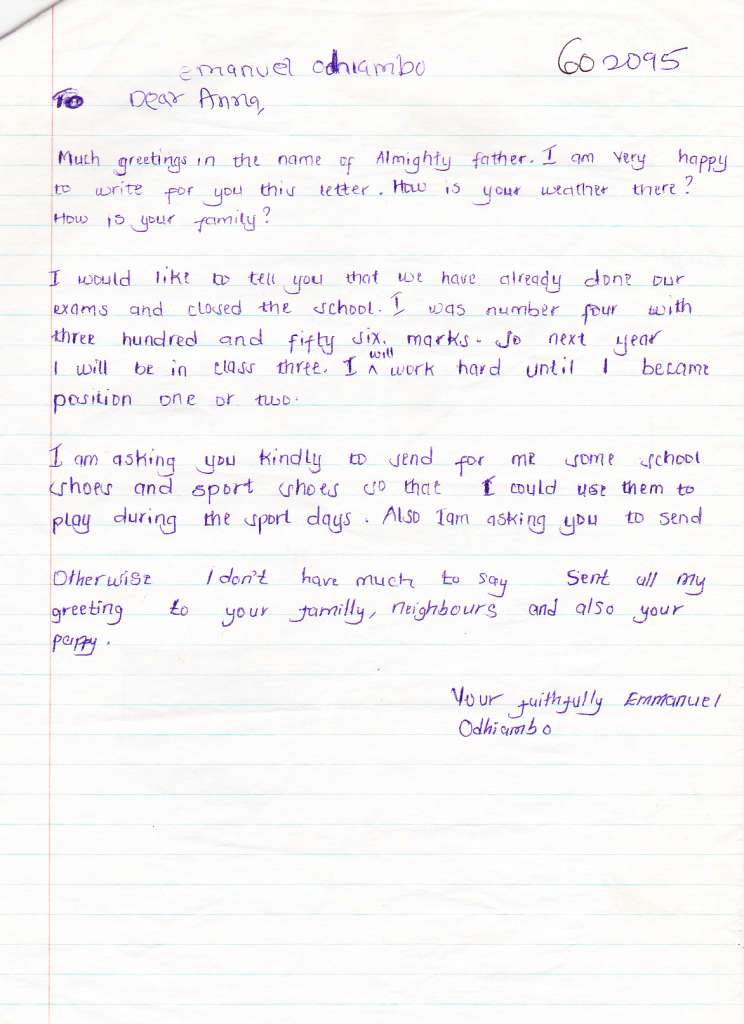 Emanuel Odhiambo 602095
To Dear Anna,
Much greetings in the name of Almighty father. I am very happy
to write for you this letter. How is your weather there?
How is your family?
I would like to tell you that we have already done our
exams and closed the school. I was number four with
three hundred and fifty six marks. So next year
I will be in class three. I will work hard until I became
position one or two.
I am asking you kindly to send for me some school
shoes and sport shoes so that I could use them to
play during the sport days. Also Iam asking you to send
Otherwise I don't have much to say Sent all my
greeting to your familly, neighbours and also your
Your faithfully Emmanuel
Odhiambo